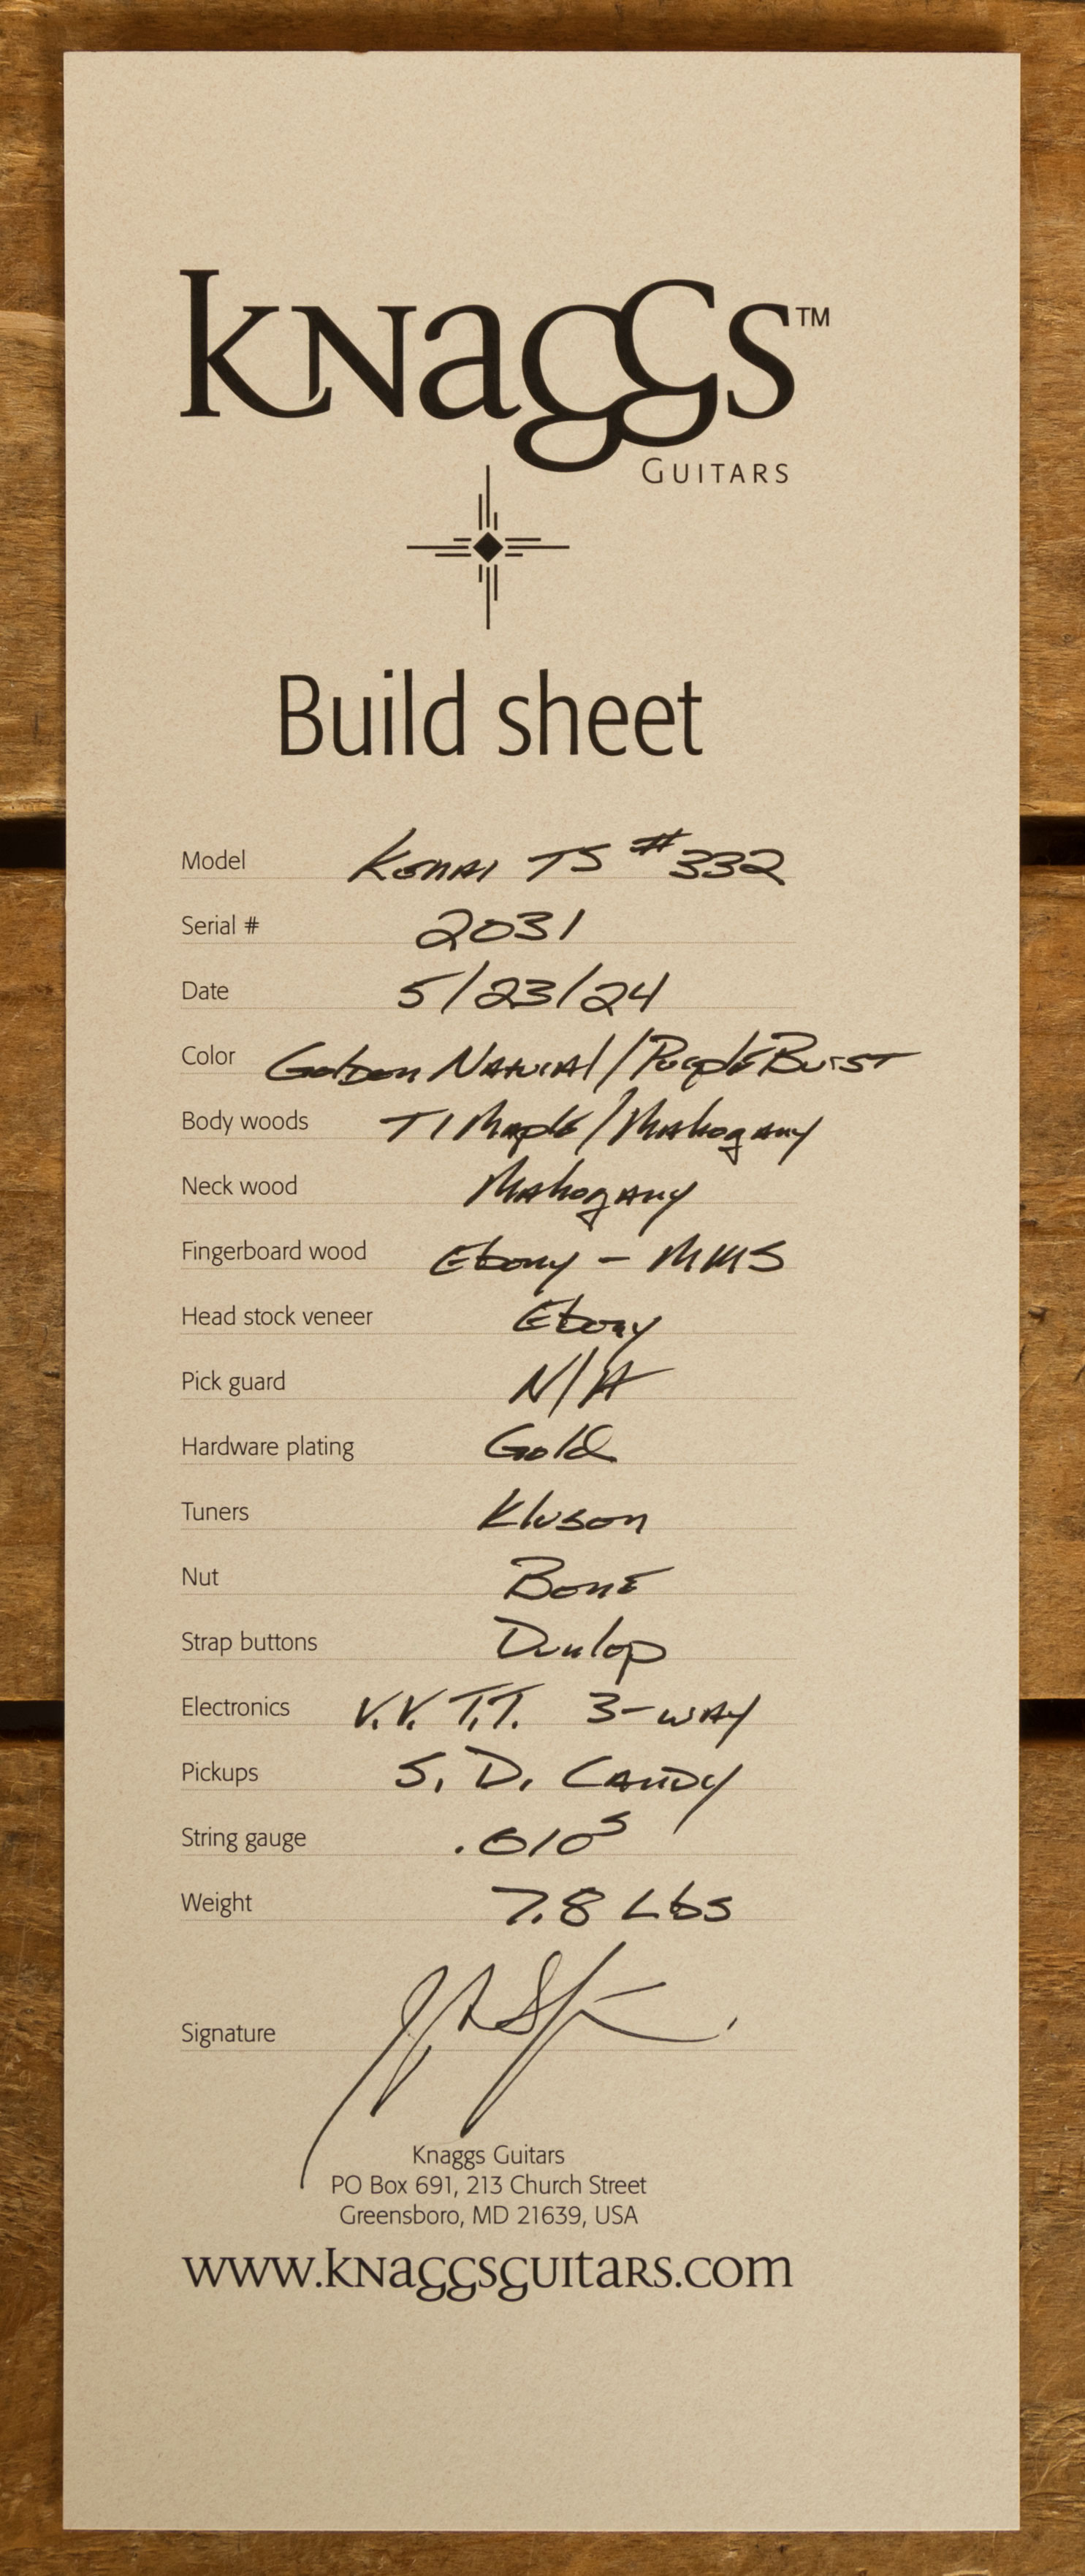 KNAGGS™
GUITARS
Build sheet
Model Kenai TS #332
Serial # 2031
Date 5/23/24
Color Golden Natural/Purple Burst
Body woods T1 Maple/Mahogany
Neck wood Mahogany
Fingerboard wood Ebony - MMS
Head stock veneer Ebony
Pick guard N/A
Hardware plating Gold
Tuners Kluson
Nut Bone
Strap buttons Dunlop
Electronics V.V. T.T. 3-WAY
Pickups S. D. CANDY
String gauge .010s
Weight 7.8 Lbs
Signature
Knaggs Guitars
PO Box 691, 213 Church Street
Greensboro, MD 21639, USA
www.knaggsguitars.com